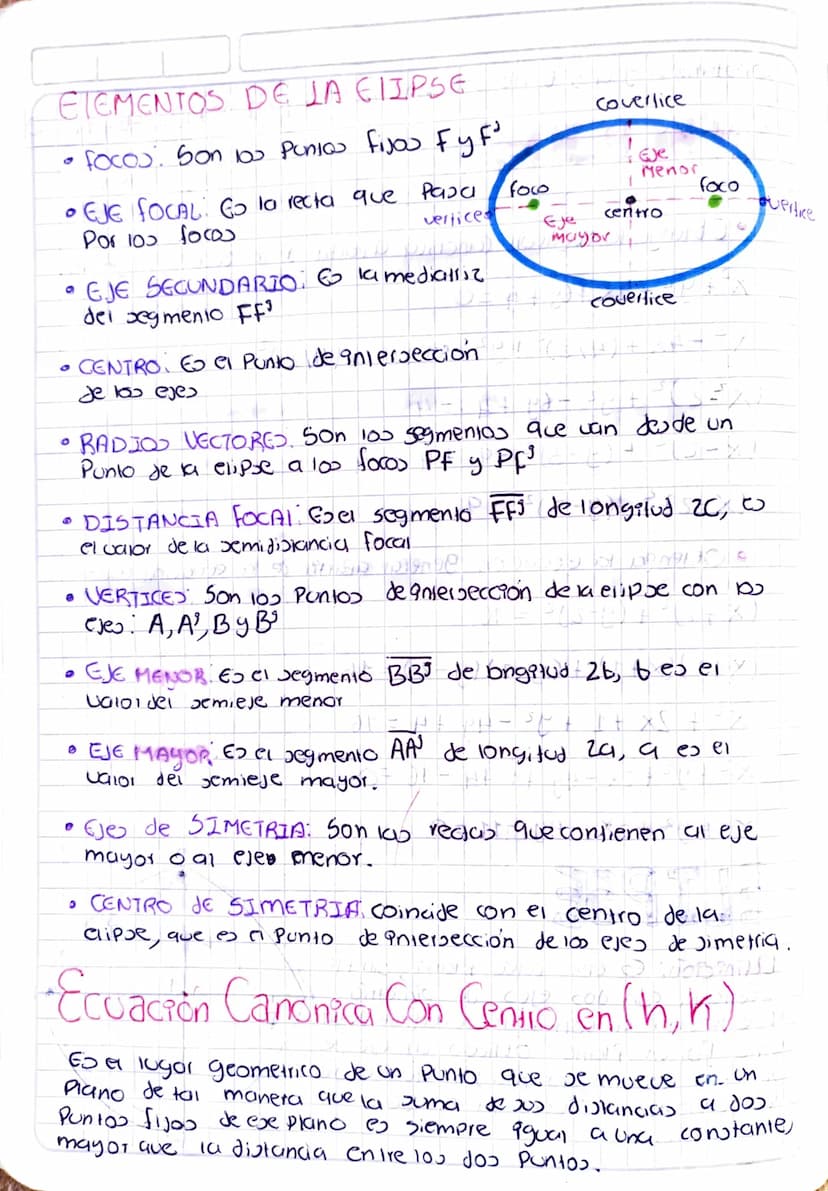 ELEMENTOS DE LA ELIPSE
• FOCOS: Son los Puntos fijos F y F'
• EJE FOCAL: Es la recta que Pasa
Por los focos
• EJE SECUNDARIO: Es la mediatriz
del segmento FF'
covertice
Eje
Menor
foco
foco
vertice
centro
vertice
Eje
mayor
covertice
• CENTRO: Es el Punto de intersección
de los ejes
• RADIOS VECTORES: Son los segmentos que van desde un
Punto de la elipse a los focos PF y PF'
• DISTANCIA FOCAL: Es el segmento FF' de longitud 2C, es
el valor de la semidistancia focal
• VERTICES: Son los Puntos de intersección de la elipse con los
ejes: A, A', B y B'
• EJE MENOR: Es el segmento BB' de longitud 2b, b es el
valor del semieje menor
• EJE MAYOR: Es el segmento AA' de longitud 2a, a es el
valor del semieje mayor.
• Ejes de SIMETRIA: Son las rectas que contienen al eje
mayor o al eje menor.
• CENTRO de SIMETRIA: coincide con el centro de la
elipse, que es el Punto de intersección de los ejes de simetria.
Ecuación Canonica Con Centro en (h, k)
Es el lugar geometrico de un Punto que se mueve en un
Plano de tal manera que la suma de sus distancias a dos
Puntos fijos de ese plano es siempre igual a una constante,
mayor que la distancia entre los dos Puntos.